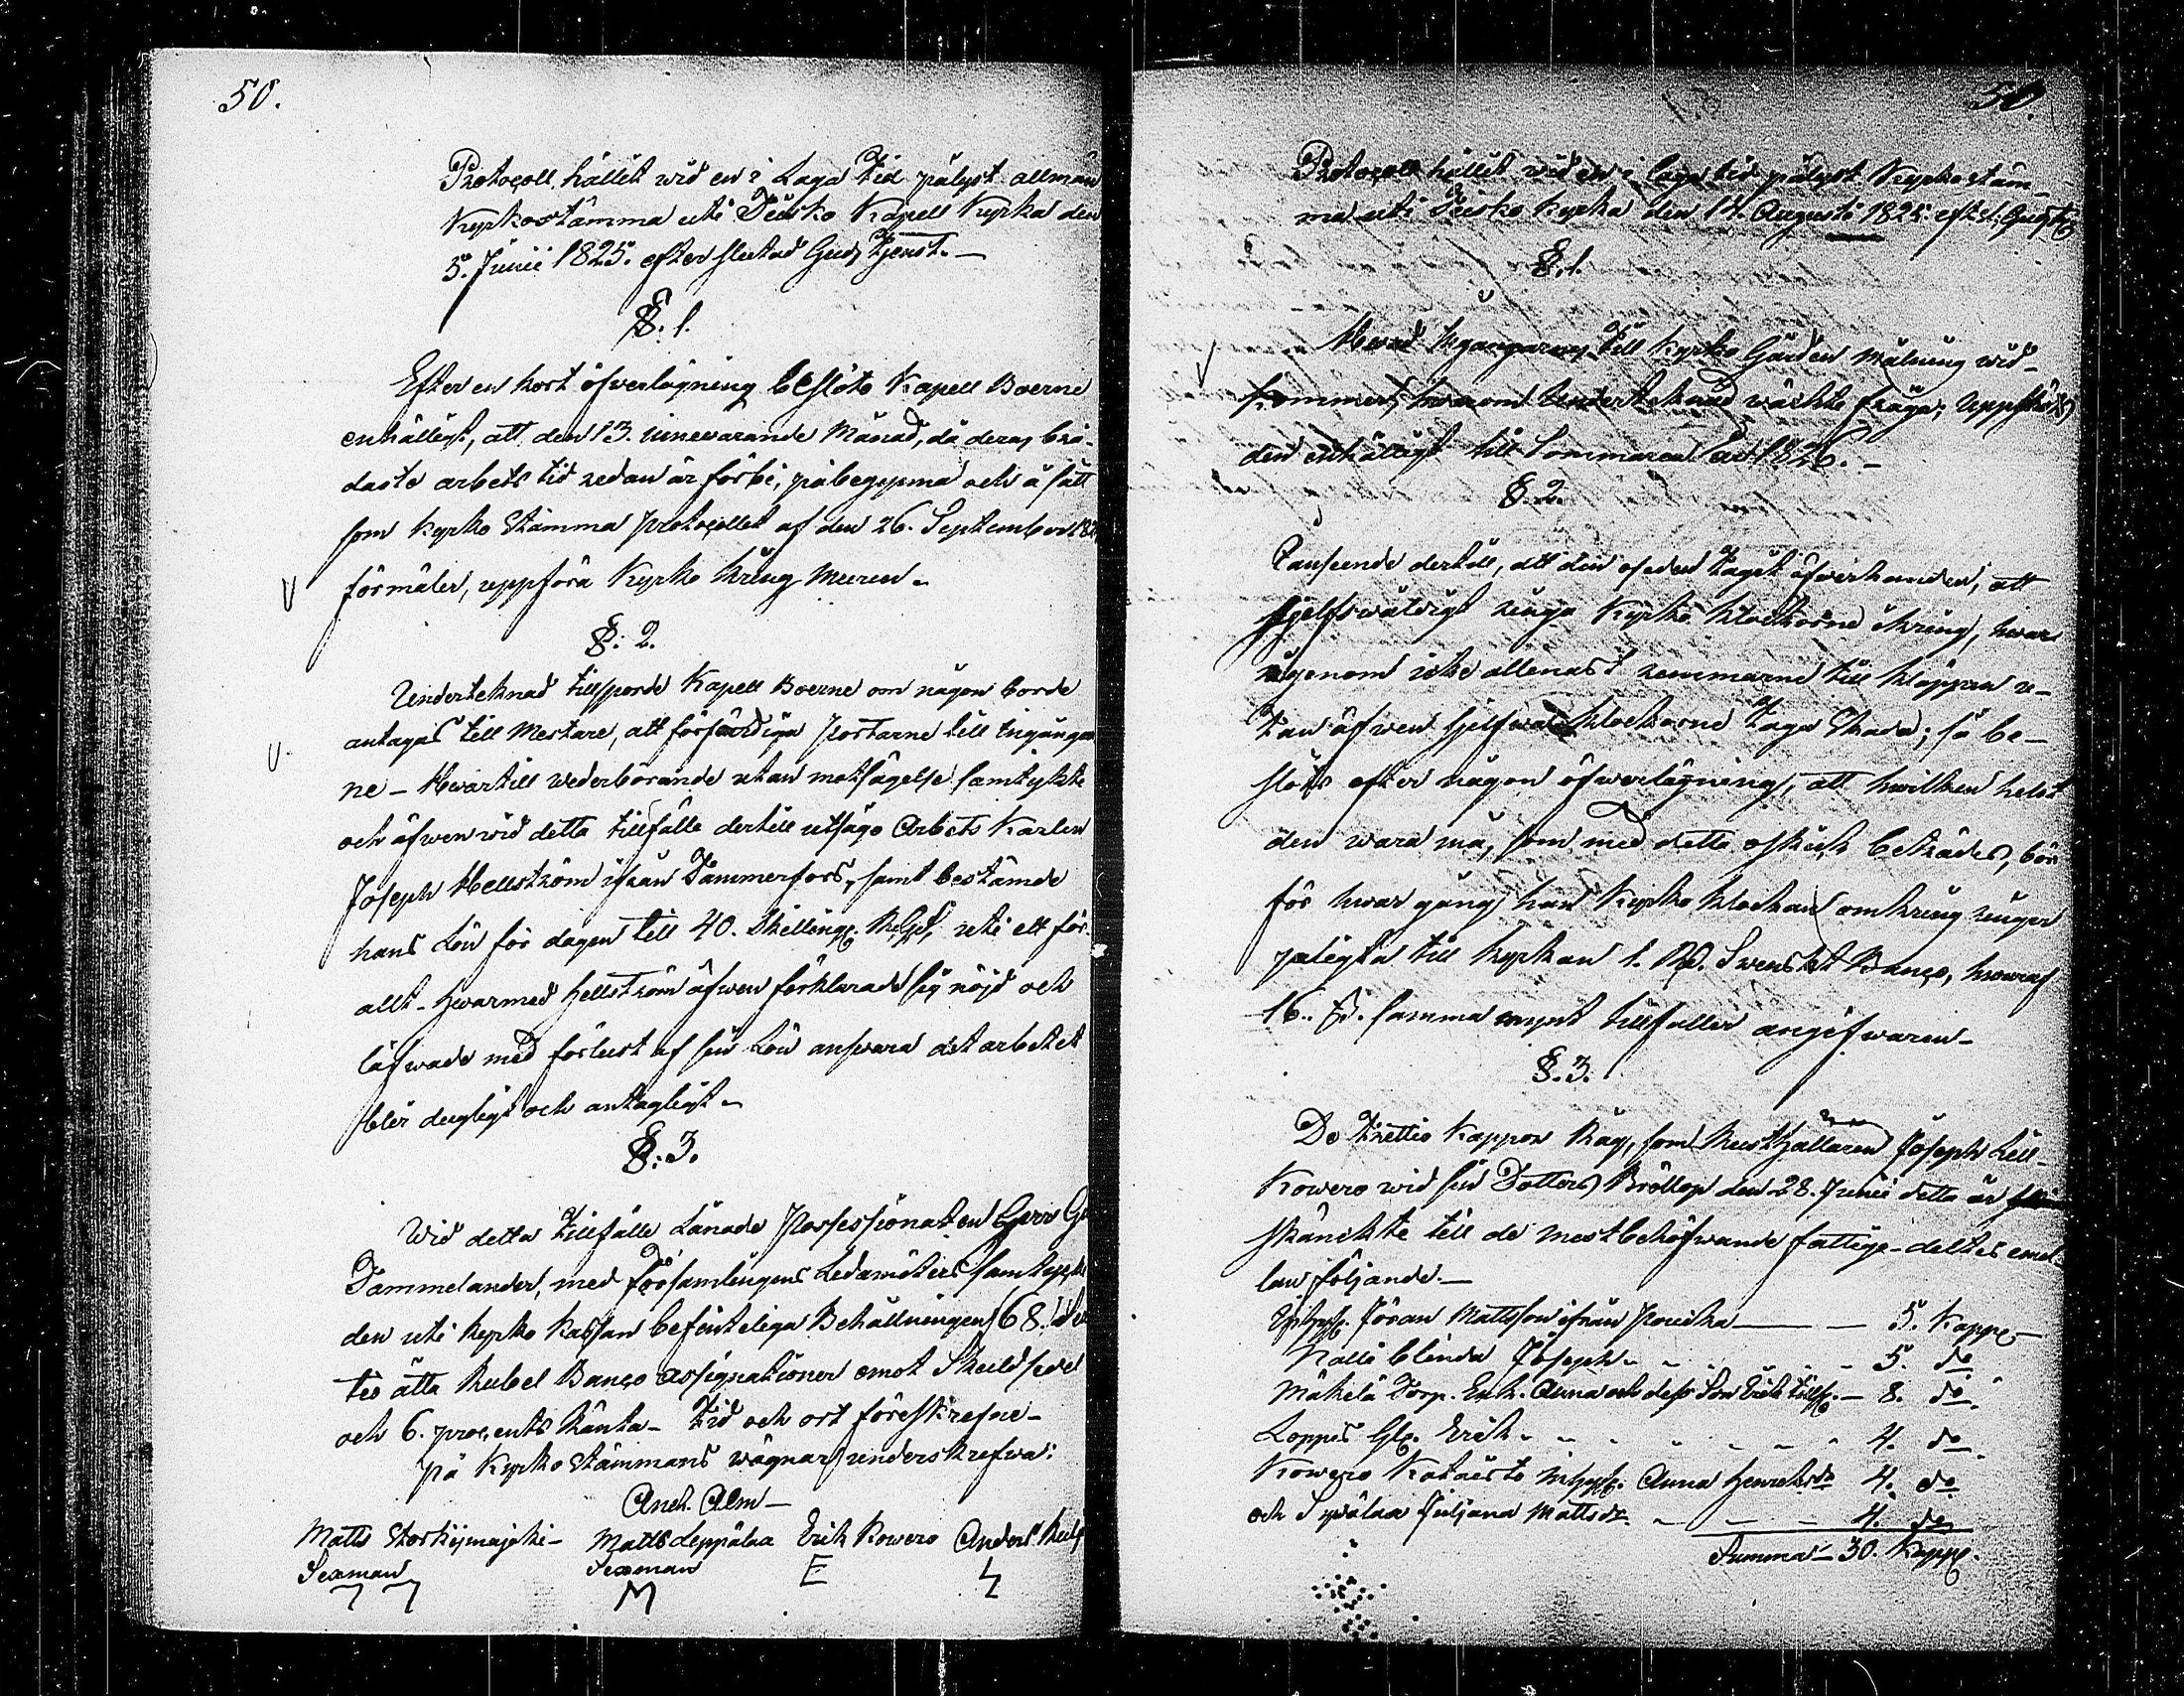 50.
Protocoll, hållit wid en i Laga Tid pålyst allmän
Kyrkostämma uti Teisko Kapell Kyrka den
5. Junii 1825. efter slutad Gudstjenst.—
§. 1.
Efter en kort öfverlägning beslöto Kapell Boerne
enhälligt, att den 13. innewarande Månad, då deras brå-
daste arbets tid redan är förbi, påbegynna och å sätt
som Kyrko Stämma protocollet af den 26. September 182
förmäler, uppföra Kyrko Kring Muren.
§. 2.
Underteknad tillsporde Kapell Boerne om någon borde
antagas till Mestare, att förfärdiga portarne till ingångar
ne — Hwartill wederbörande utan motsägelse samtykte
och äfwen wid detta tillfälle dertill utsågo Arbets Karlen
Joseph Hellström ifrån Tammerfors, samt bestämde
hans Lön för dagen till 40. Skilling RGs, uti ett för
allt — hwarmed Hellström äfwen förklarade sig nöjd och
låfwade med förlust af sin Lön answara at arbetet
blir dugligt och antagligt.
§. 3.
Wid detta tillfälle Lånade Possessionaten Herr G
Tammelander, med församlingens Ledamöters samtycke
den uti kyrko kassan befinteliga Behållningen 68. Sex
tio åtta Rubel Banco Assignationer emot Skuldsedel
och 6. procents Ränta — tid och ort föreskrefne —
på Kyrko Stämmans wägnar underskrefwa:
And. Alm —
Matts Storkijmajeki — Matts Leppälaa Erik Kowero Anders
Sexman Sexman E

50.
Protocoll hållit wid en i laga tid pålyst Kyrkostäm-
ma uti Teisko Kyrka den 14. Augusti 1825. eft sl. Gudstj
§. 1.
Hwad Ingångarnes till Kyrko Gården målning wid-
kommer, hwarom Undertecknad wäckte fråga, uppsköts
den enhälligt till Sommaren året 1826. —
§. 2.
I anseende dertill, att den oseden tagit öfwerhanden, att
sjelfswåldigt ringa Kyrko klockorne ikring, hwar
igenom icke allenast remmarne till kläppen u-
tan äfwen sjelfwa klockorne taga skada; så be-
slöts efter någon öfwerlägning, att hwilken helst
den wara må, som med detta oskick beträdes, bör
för hwar gång han Kyrko klockan omkring ringer
pligta till kyrkan 1. Rd. Swenskt Banco, hwaraf
16. s. samma mynt tillfaller angifwaren —
§. 3.
De trettio Kappor Råg, som Rusthållaren Joseph Lill-
Kowero wid sin Dotters Bröllop den 28. Junii detta år
skänckte till de mest behöfwande fattige — deltes emel-
lan följande. —
Göran Mattsson ifrån — — 5. Kappr
blinda Joseph — — 5. do
Mäkelä Torp. Enk. Anna och dess Son Erik tills. — 8. do
Erik — — — 4. do
Kowero Anna Henricksdr 4. do
och Juliana Mattsdr. — — — 4. do
Summa — 30. Kappr.